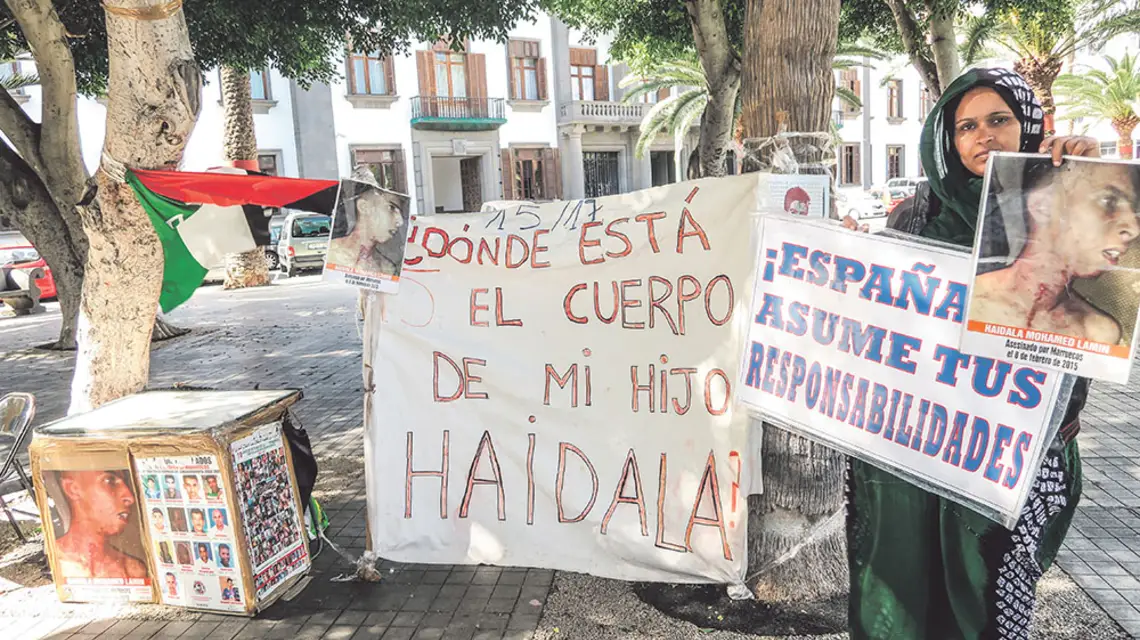 15/17
¿DÓNDE ESTÁ
EL CUERPO
DE MI HIJO
HAIDALA?
¡ESPAÑA
ASUME TUS
RESPONSABILIDADES
HAIDALA MOHAMED LAMIN
Asesinado por Marruecos
el 8 de febrero de 2015